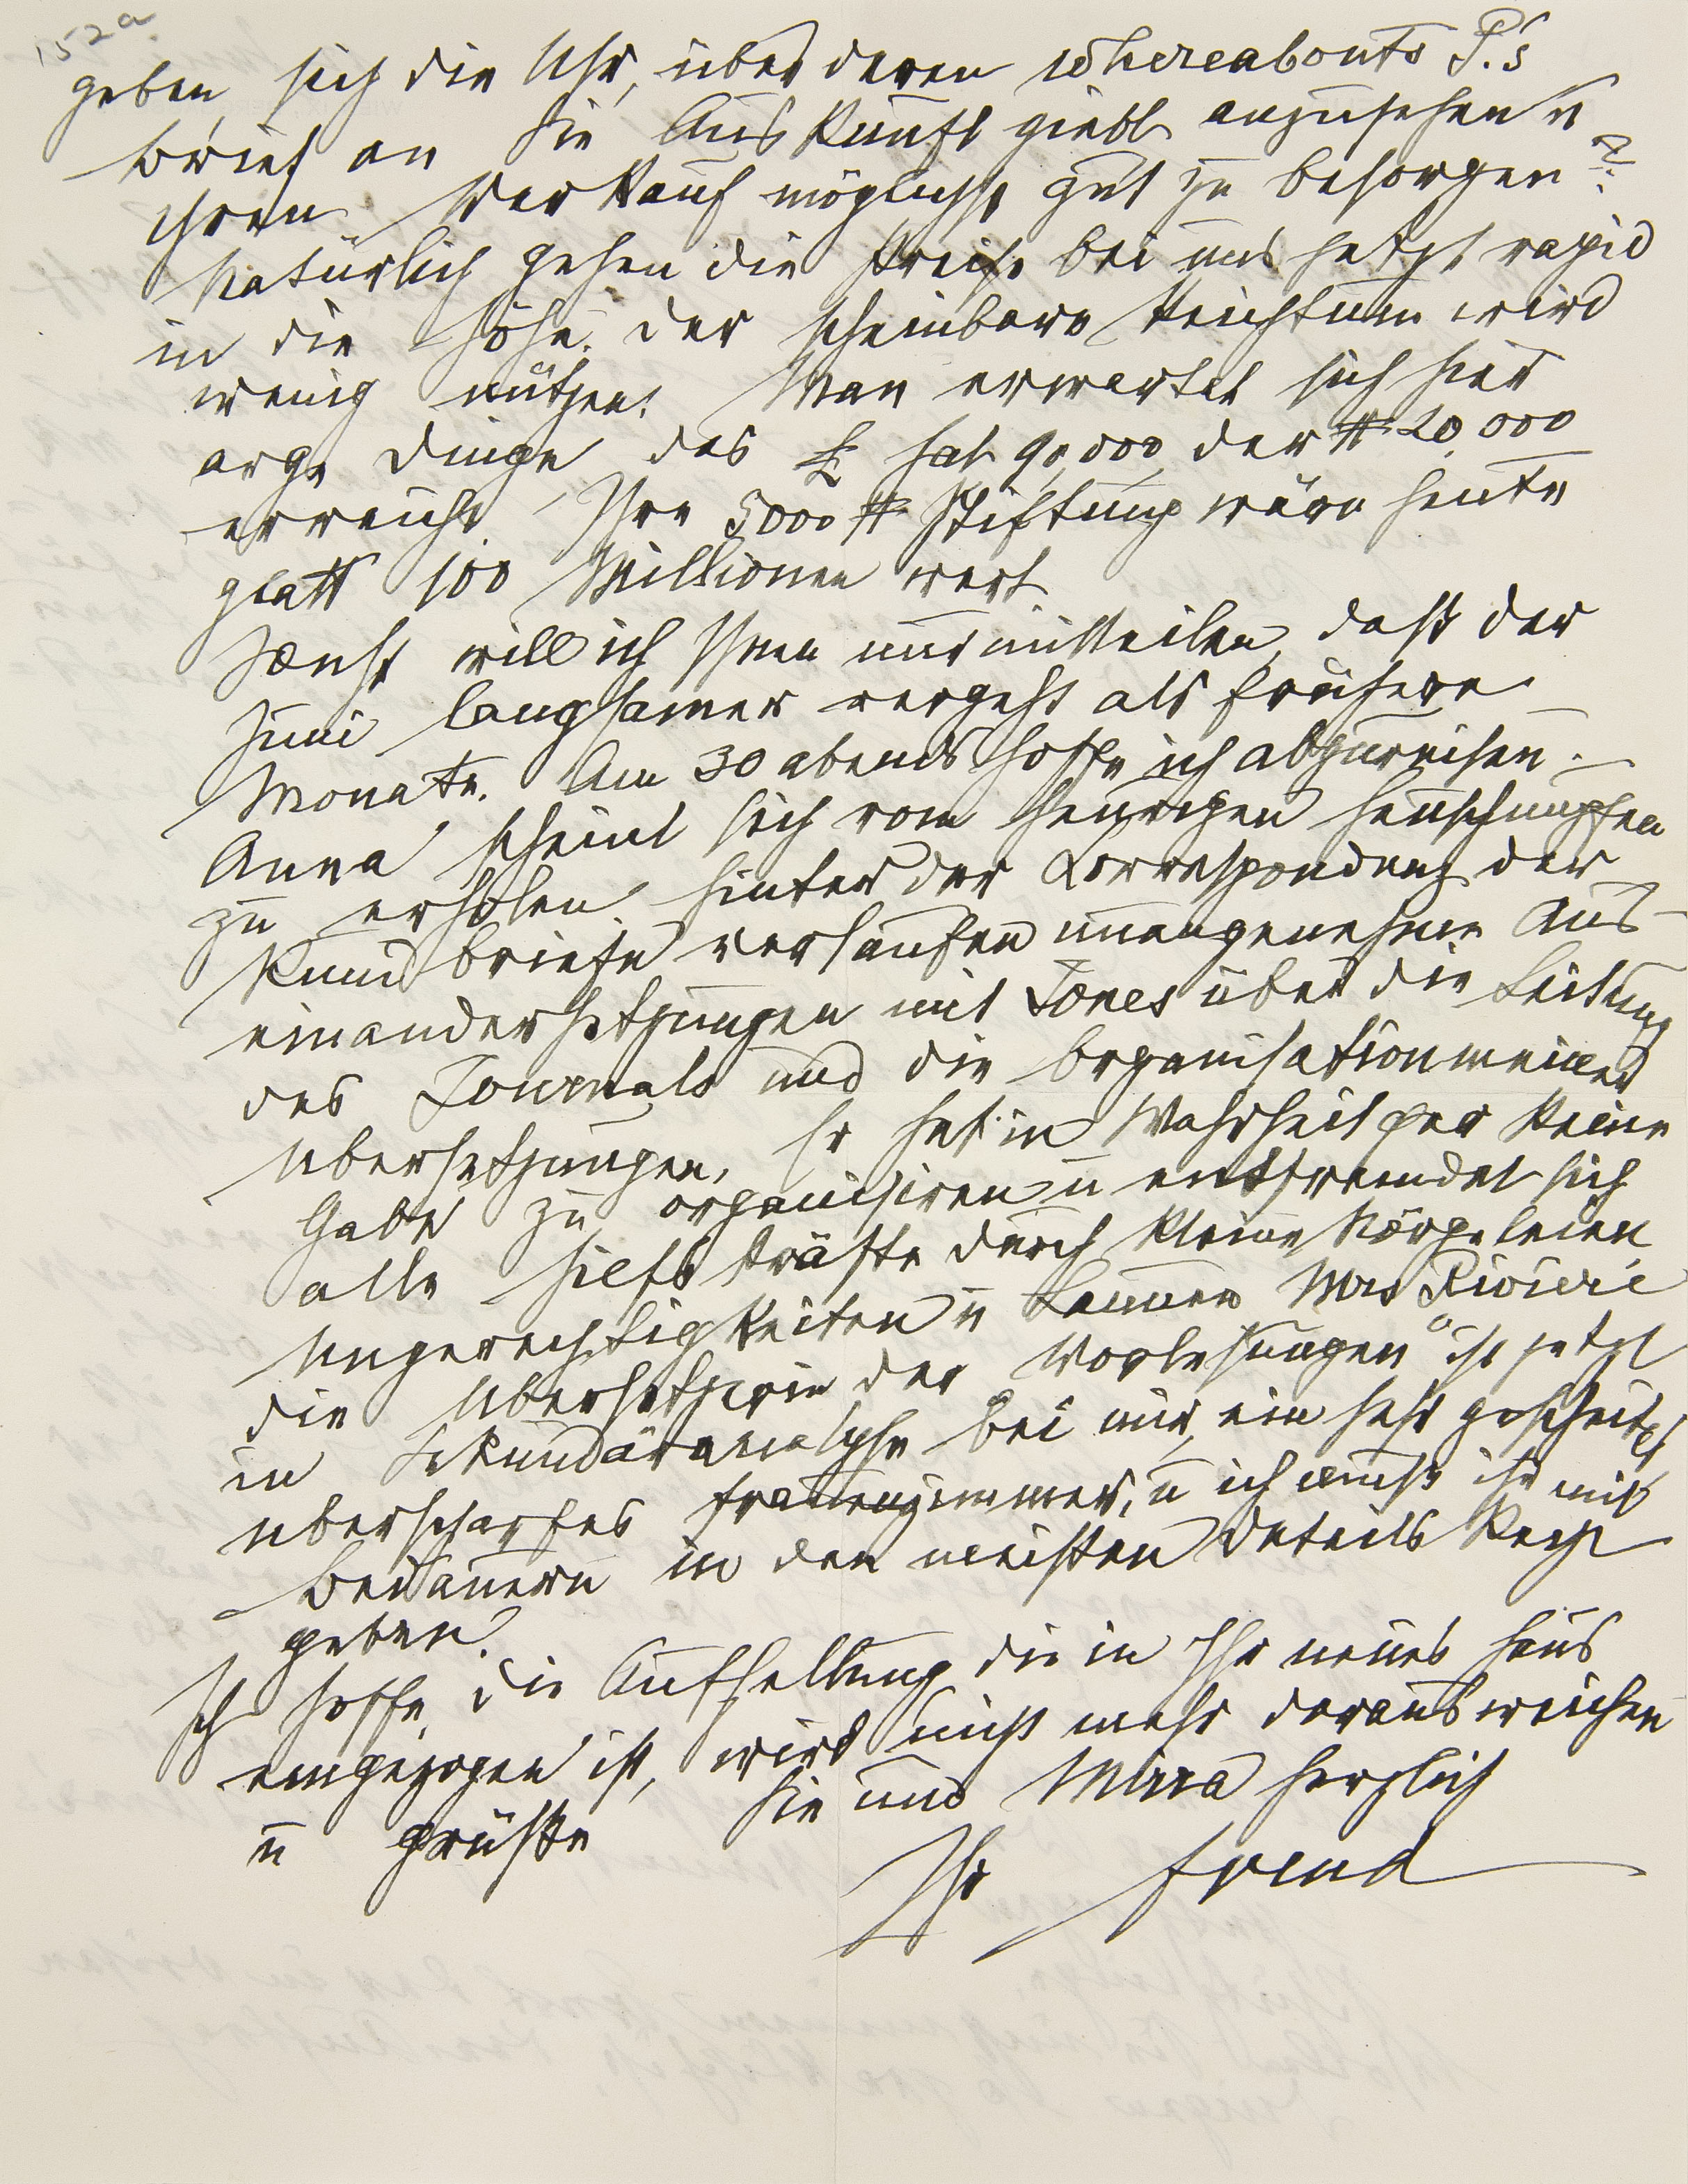 152a
geben, sich die Uhr, über deren whereabouts P.'s
Brief an Sie Auskunft giebt anzusehen u
ihren Verkauf möglichst gut zu besorgen?
Natürlich gehen die Preise bei uns jetzt rapid
in die Höhe. Der scheinbare Reichtum wird
wenig nützen. Man erwartet sich hier
arge Dinge das £ hat 90,000, der $ 20,000
erreicht. Ihre 5000 $ Stiftung wäre heute
glatt 100 Millionen wert.
Sonst will ich Ihnen nur mitteilen, daß der
Juni langsamer vergeht als frühere
Monate. Am 30 abends hoffe ich abzureisen. –
Anna scheint sich vom heurigen Heuschnupfen
zu erholen. Hinter der Correspondenz der
Rundbriefe verlaufen unangenehme Aus-
einandersetzungen mit Jones über die Leitung
des Journals und die Organisation meiner
Übersetzungen. Er hat in Wahrheit gar keine
Gabe zu organisiren u entfremdet sich
alle Hilfskräfte durch kleine Nörgeleien
Ungerechtigkeiten u Launen. Mrs Riviere
die Übersetzerin der „Vorlesungen“ ist jetzt
in Sekundäranalyse bei mir, ein sehr gescheites
überscharfes Frauenzimmer, u ich muß ihr mit
Bedauern in den meisten Details Recht
geben.
Ich hoffe, die Aufhellung die in Ihr neues Haus
eingezogen ist, wird nicht mehr daraus weichen
u grüße Sie und Mirra herzlich
Ihr Freud